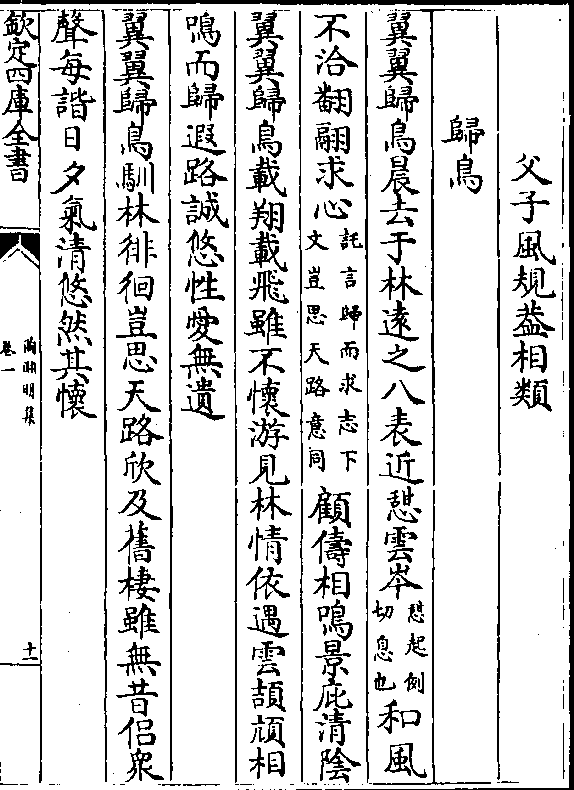 父子風規葢相類
歸鳥
翼翼歸鳥晨去于林遠之八表近憇雲岑憇起例切息也和風
不洽翻翮求心託言歸而求志下文豈思天路意同顧儔相鳴景庇清陰
翼翼歸鳥載翔載飛雖不懷游見林情依遇雲頡頏相
鳴而歸遐路誠悠性愛無遺
翼翼歸鳥馴林徘徊豈思天路欣及舊棲雖無昔侣衆
聲每諧日夕氣清悠然其懷
欽定四庫全書
陶淵明集
卷一
十一